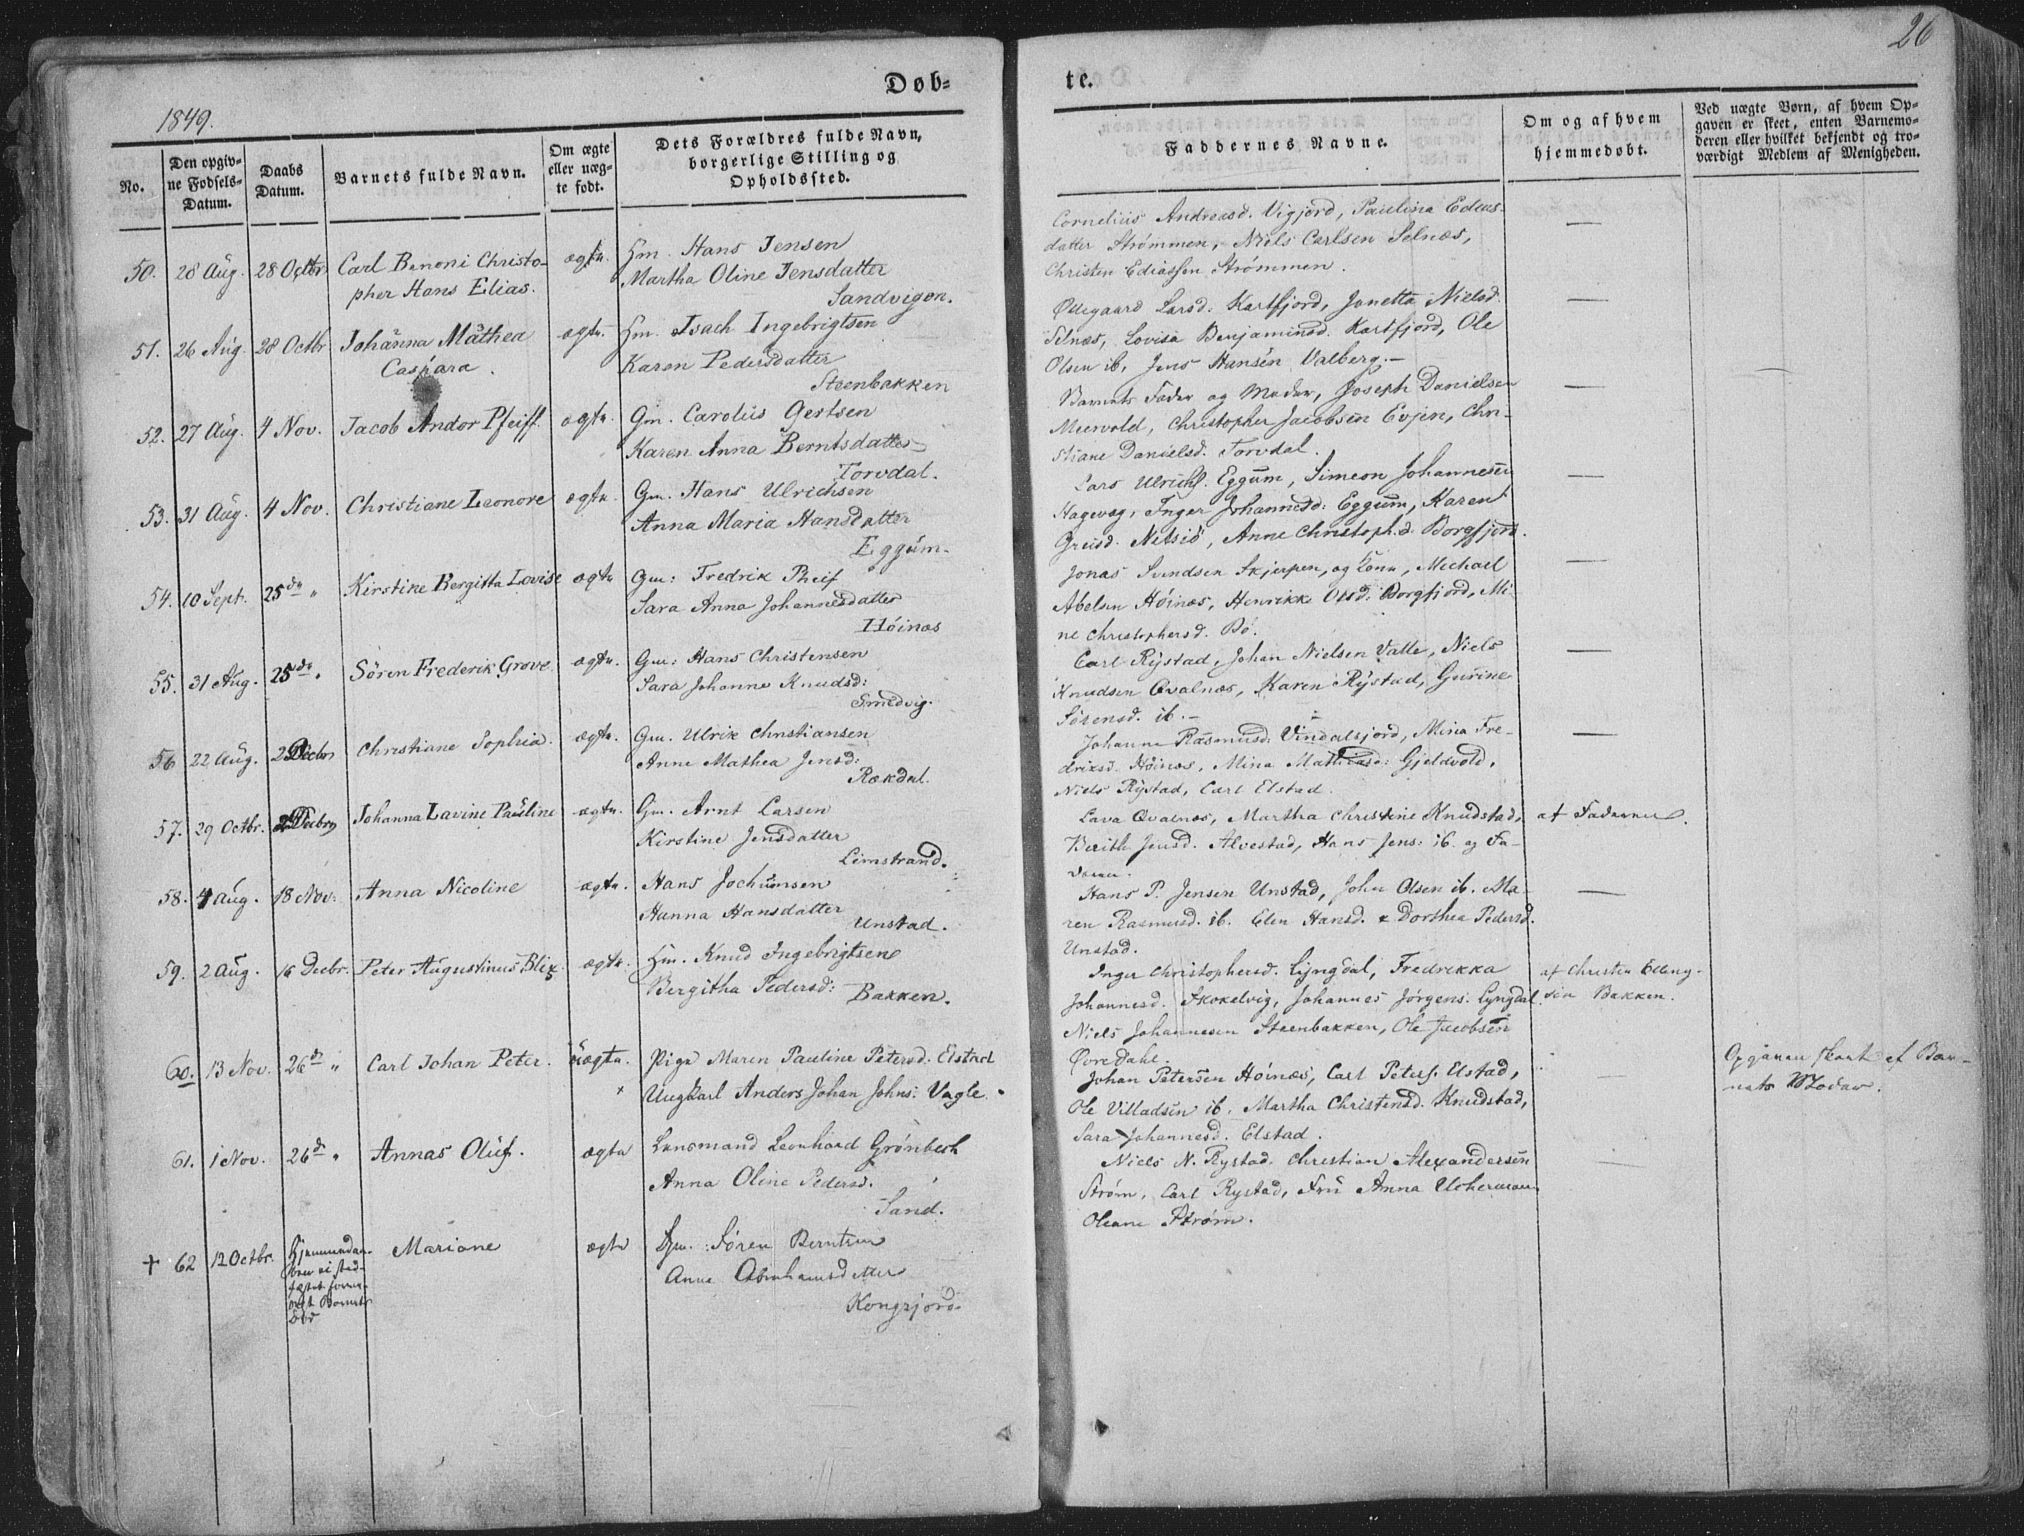 26
Døb=
te.
1849.
No.
Den opgiv-
ne Fødsels-
Datum.
Daabs
Datum.
Barnets fulde Navn.
Om ægte
eller uæg-
te født.
Dets Forældres fulde Navn,
borgerlige Stilling og
Opholdssted.
Faddernes Navne.
Om og af hvem
hjemmedøbt.
Ved uægte Børn, af hvem Op-
gaven er skeet, enten Barnemo-
deren eller hvilket bekjendt og tro-
værdigt Medlem af Menigheden.
50. 28 Aug. 28 Octbr. Carl Benoni Christo-
pher Hans Elias.
ægte. Hm. Hans Jensen
Martha Oline Jensdatter
Sandvigen.
Cornelius Andreasd. Vigjord, Paulina Edias-
datter Strømmen, Niels Carlsen Selnæs,
Christen Ediassen Strømmen.
51. 26 Aug. 28 Octbr Johanna Mathea
Caspara.
ægte. Hm. Isach Ingebrigtsen
Karen Pedersdatter
Steenbakken
Ødegaard Larsd. Kartfjord, Janetta Nielsd.
Selnæs, Lovisa Benjaminsd. Kartfjord, Ole
Olsen ib, Jens Hansen Valberg.
52. 27 Aug. 4 Nov. Jacob Andor Pfeiff.
ægte. Gm. Carolus Gertsen
Karen Anna Berntsdatter
Torvdal.
Barnets Fader og Moder, Joseph Danielsen
Meervold, Christopher Jacobsen Evjen, Chri-
stiane Danielsd. Torvdal.
53. 31 Aug. 4 Nov. Christiane Leonore
ægte. Gm. Hans Ulrichsen
Anna Maria Hansdatter
Eggum.
Lars Ulrichs. Eggum, Simeon Johannesen
Hagevag, Inger Johannesd: Eggum, Karen
Greisd. Netsiö, Anne Christoph.d. Borgfjord.
54. 10 Sept. 25de " Kirstine Bergitta Lovise
ægte Gm: Fredrik Pheif
Sara Anna Johannesdatter
Höinæs
Jonas Svendsen Skjerpen, og Kone, Michael
Abelsen Höinæs, Henrikk Olsd: Borgfjord, Mi-
ne Christophersd. Bö.
55. 31 Aug. 25de " Sören Frederik Grove
ægte. Gm: Hans Christensen
Sara Johanne Knudsd:
Smedvig.
Carl Rystad, Johan Nielsen Valle, Niels
Knudsen Qvalnæs, Karen Rystad, Gurine
Sörensd. ib.
56 22 Aug. 2 Decbr Christiane Sophia.
ægte. Gm. Ulrik Christiansen
Anne Mathea Jensd:
Rækdal.
Johanne Rasmusd. Vindalsjord, Mina Fre-
driksd. Höinæs, Mina Mathiasd: Gjeldvold,
Niels Rystad, Carl Elstad.
57. 29 Octbr. 2 Decbr Johanna Lavine Pauline
ægte. Gm. Arnt Larsen
Kirstine Jensdatter
Limstrand.
Lava Qvalnæs, Martha Christine Knudstad,
Berith Jensd. Alvestad, Hans Jens: ib. og Fa-
deren.
af Faderen.
58. 4 Aug. 18 Nov. Anna Nicoline
ægte. Hans Jochumsen
Hanna Hansdatter
Unstad.
Hans P. Jensen Unstad, John Olsen ib. Ma-
ren Rasmusd. ib. Elen Hansd. & Dorthea Pedersd.
Unstad.
59. 2 Aug. 16 Decbr. Peter Augustinus Blix
ægte. Hm. Knud Ingebrigtsen
Bergitha Pedersd:
Bakken.
Inger Christophersd. Lyngdal, Fredrikka
Johannesd. Skokelvig, Johannes Jörgens. Lyngdal
Niels Johannesen Steenbakken, Ole Jacobsen
Øvredahl.
af Christen Elling-
sen Bakken.
60. 13 Nov. 26d " Carl Johan Peter.
uægte. Pige Maren Pauline Petersd. Elstad
Ungkarl Anders Johan Johns: Vagle.
Johan Petersen Höinæs, Carl Peters. Elstad,
Ole Villadsen ib. Martha Christensd. Knudstad,
Sara Johannesd. Elstad.
Opgaven skeet af Bar-
nets Moder.
61. 1 Nov. 26d " Annas Oluf.
ægte Lensmand Leonhard Grönbech
Anna Oline Pedersd.
Sand.
Niels N. Rystad. Christian Alexandersen
Strøm, Carl Rystad, Fru Anna Uchermann
Oleane Strøm.
+ 62 12 Octbr. Hjemmedaa-
ben ei stad-
fæstet formed-
elst Barnets
Död
Mariane
ægte Gm. Sören Berntsen
Anne Abrahamsdatter
Kongsjord